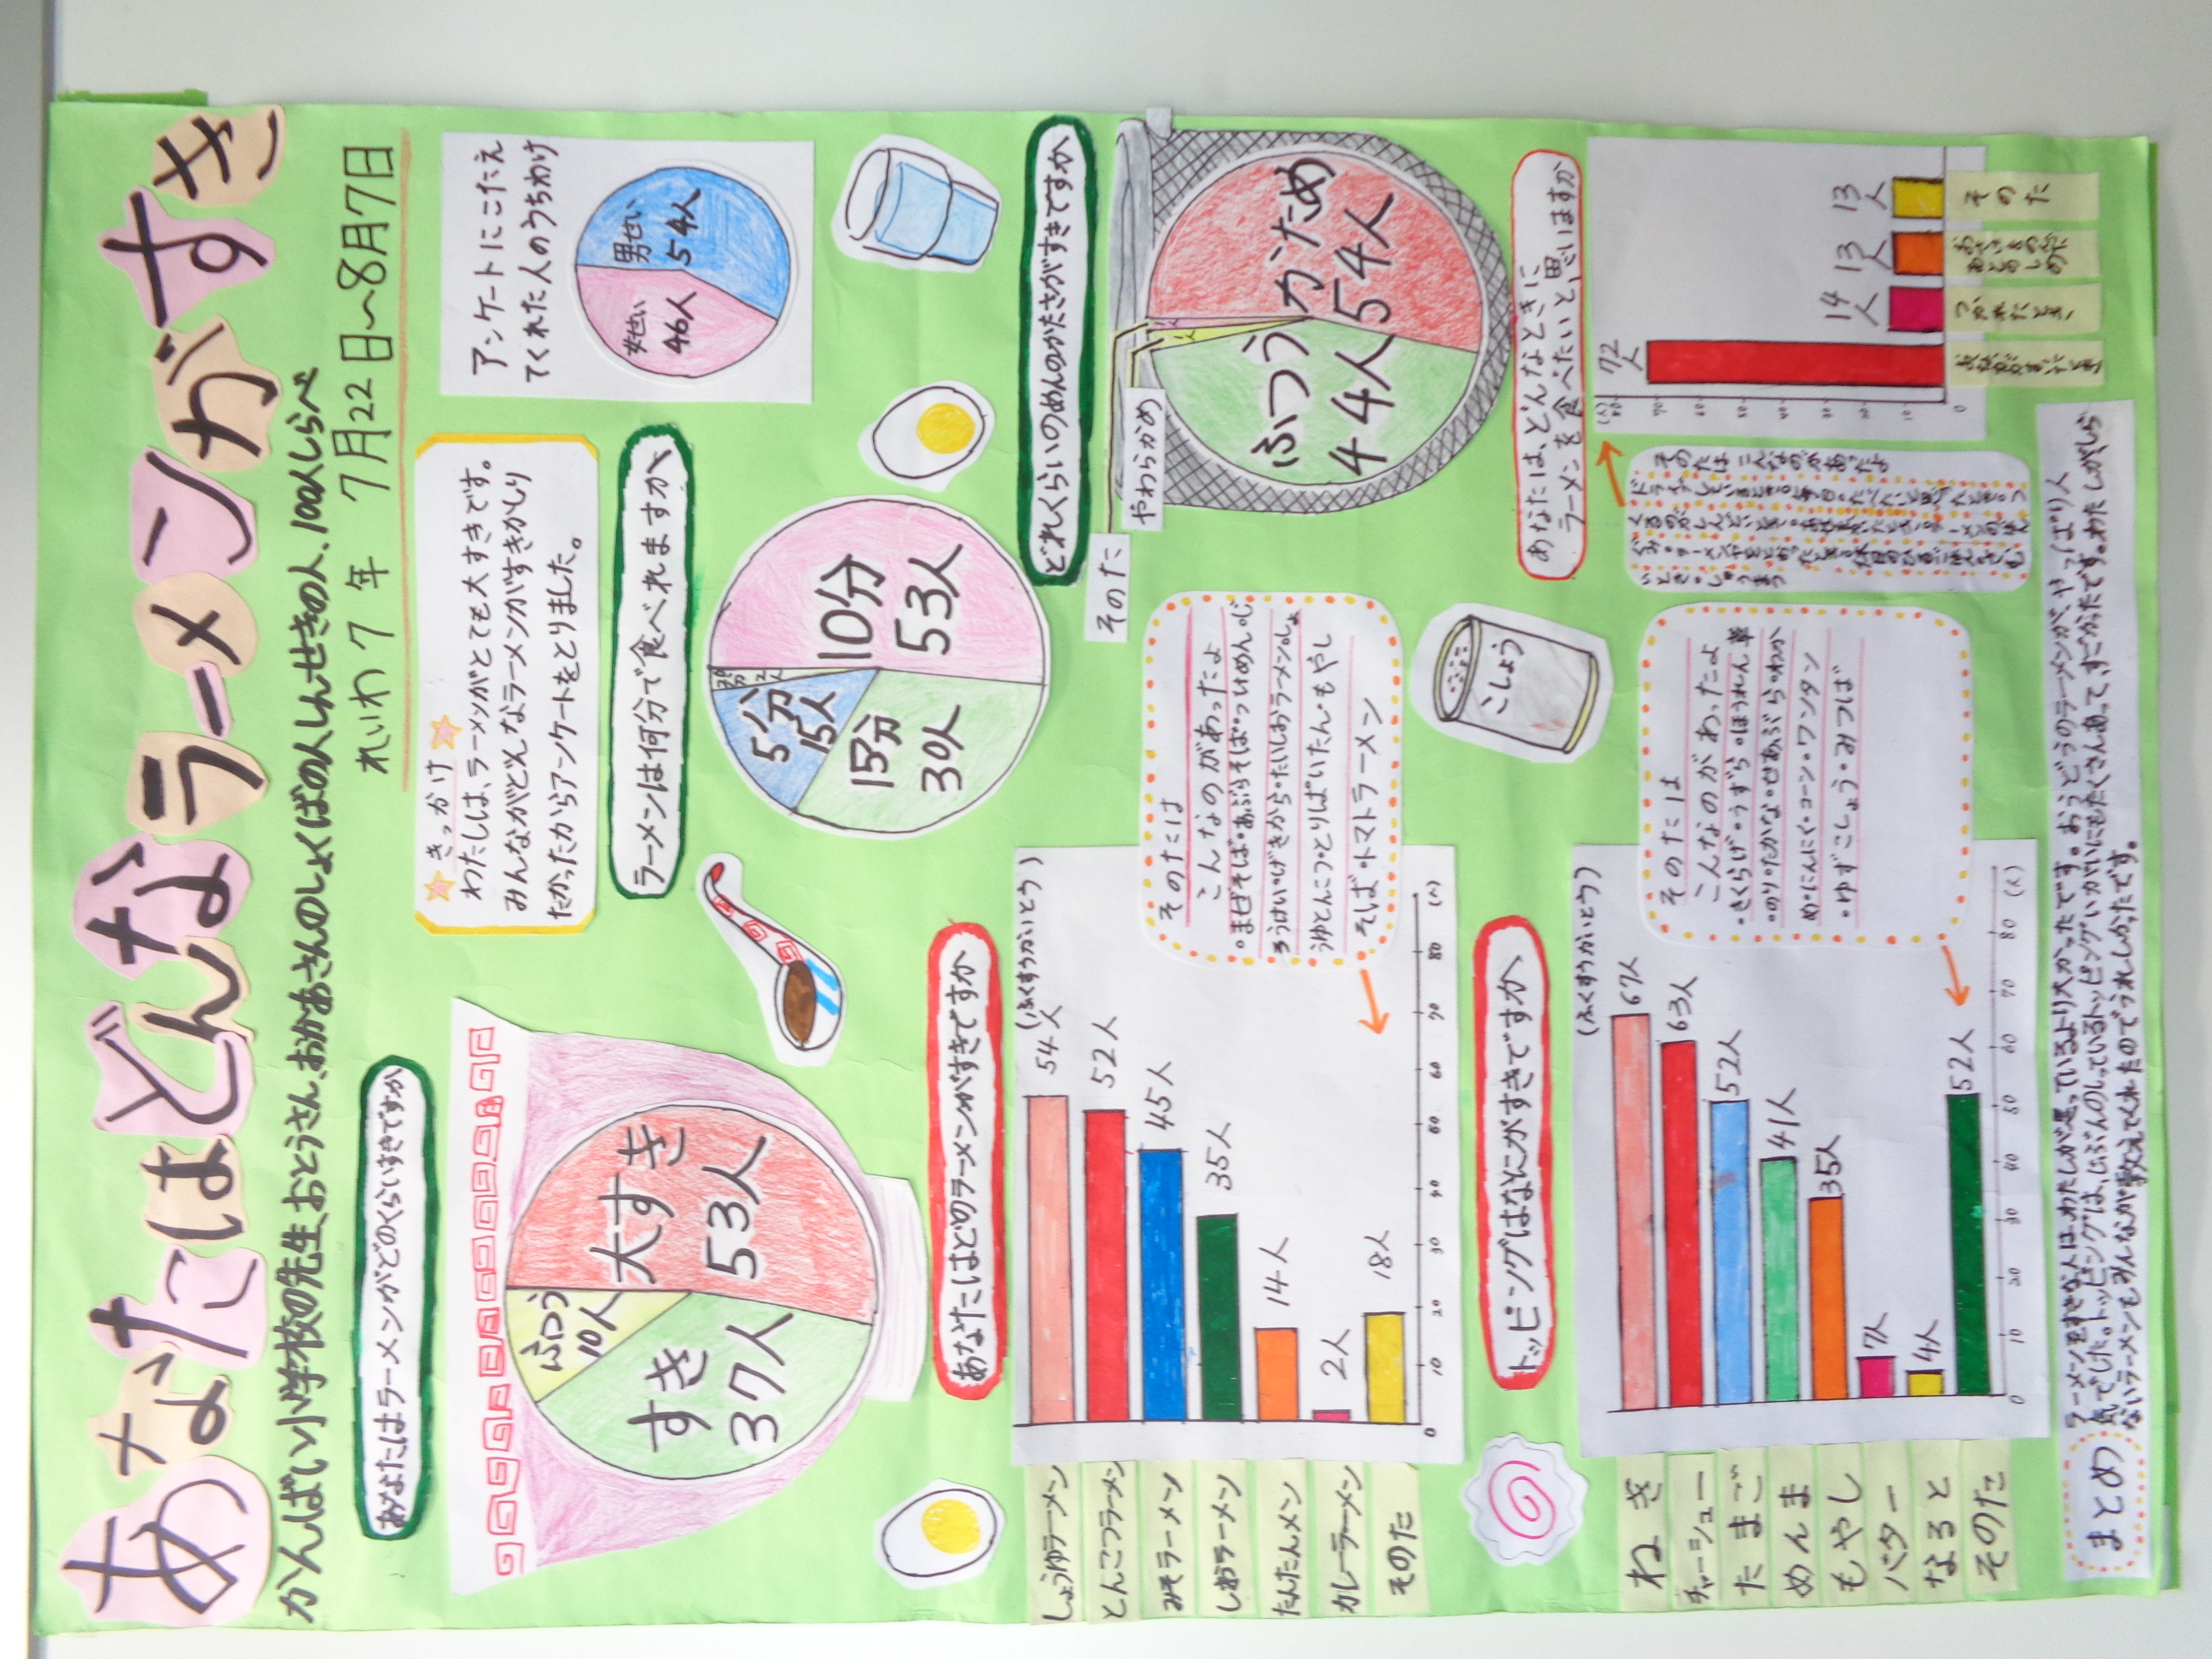 あなたはどんなラーメンがすき
かんばい小学校の先生、おとうさん、おかあさんのしょくばの人、しんせきの人、100人しらべ
れいわ7年 7月22日〜8月7日
あなたはラーメンがどのくらいすきですか
大すき
53人
すき
37人
ふつう
10人
きっかけ
わたしは、ラーメンがとても大すきです。
みんながどんなラーメンがすきかしり
たかったからアンケートをとりました。
アンケートにこたえ
てくれた人のうちわけ
男せい
54人
女せい
46人
ラーメンは何分で食べれますか
10分
53人
15分
30人
5分
15人
20分
2人
どれくらいのめんのかたさがすきですか
かため
54人
ふつう
44人
やわらかめ
そのた
あなたはどのラーメンがすきですか
(ふくすうかいとう)
しょうゆラーメン
54人
とんこつラーメン
52人
みそラーメン
45人
しおラーメン
35人
たんたんメン
14人
カレーラーメン
2人
そのた
18人
0 10 20 30 40 50 60 70 80 (人)
そのたは
こんなのがあったよ
・まぜそば・あぶらそば・つけめん・じ
ろうけい・いげきから・たいしおラーメン・しょ
うゆとんこつ・とりぱいたん・もやし
そば・トマトラーメン
こしょう
あなたは、どんなときに
ラーメンを食べたいと思いますか
(人)
80
70
60
50
40
30
20
10
0
72人
14人
つかれたとき
13人
13人
そのた
そのたはこんなのがあったよ
トッピングはなにがすきですか
(ふくすうかいとう)
ねぎ
67人
チャーシュー
63人
たまご
52人
めんま
41人
もやし
35人
バター
7人
なると
4人
そのた
52人
0 10 20 30 40 50 60 70 80 (人)
そのたは
こんなのがあったよ
・きくらげ・うずら・ほうれん草
・のり・たかな・せあぶら・わか
め・にんにく・コーン・ワンタン
・ゆずこしょう・みつば
まとめ
ラーメンをすきな人は、わたしが思っているより大かったです。おうどうのラーメンが、やっぱり人
気でした。トッピングは、じぶんのしっているトッピングいがいにもたくさんあって、すごかったです。わたしがしら
ないラーメンもみんなが教えてくれたのでうれしかったです。